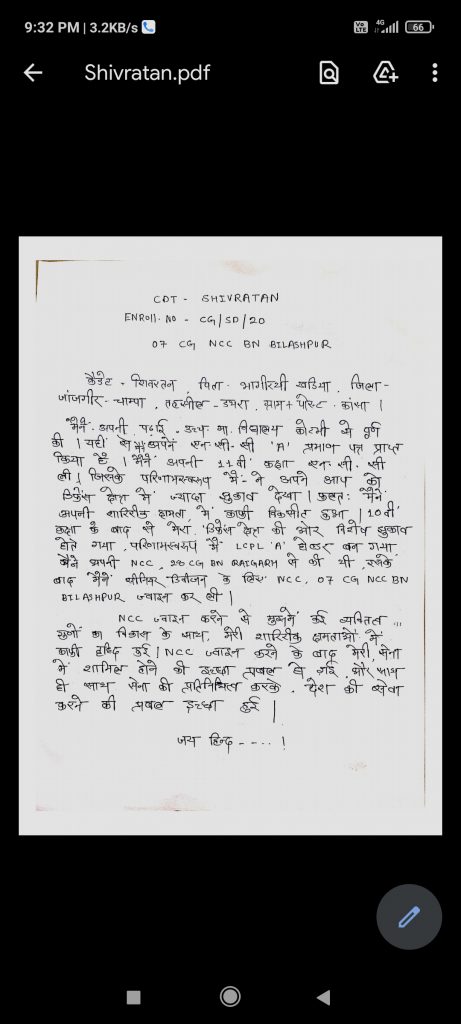 9:32 PM | 3.2KB/s
Vo LTE 4G 66
Shivratan.pdf
CDT - SHIVRATAN
ENROLL. NO - CG/SD/20
07 CG NCC BN BILASHPUR
कैडेट - शिवरतन, पिता - भागीरथी खडिया, जिला-
जांजगीर-चाम्पा, तहसील - डभरा, ग्राम + पोस्ट - कांसा |
मैंने अपनी पढ़ाई, उच्च मा. विद्यालय कोटमी से पूर्ण
की | यहीं से मैं अपने एन-सी-सी 'A' प्रमाण पत्र प्राप्त
किया है | मैंने अपनी 11वी कक्षा एन. सी. सी
ली | जिसके परिणामस्वरूप मैं ने अपने आप को
डिफेंस क्षेत्र में ज्यादा झुकाव देखा | फलतः मैंने
अपनी शारिरीक क्षमता में काफी विकसीत हुआ | 10वी
कक्षा के बाद से मेरा डिफेंस क्षेत्र की ओर विशेष झुकाव
होते गया, परिणामस्वरूप मैं LCPL 'A' होल्डर बन गया
मैंने अपनी NCC, 28 CG BN RAIGARH से की थी, इसके
बाद मैंने सीनियर डिवीजन के लिए NCC, 07 CG NCC BN
BILASHPUR ज्वाइन कर ली |
NCC ज्वाइन करने से मुझमें कई व्यक्तित्व
गुणों का विकास के साथ, मेरी शारिरीक क्षमताओं में
काफी वृद्धि हुई | NCC ज्वाइन करने के बाद मेरी, सेना
में शामिल होने की इच्छा प्रबल हो गई, और साथ
ही साथ सेना की प्रतिनिधित्व करके, देश की सेवा
करने की प्रबल इच्छा हुई |
जय हिन्द - - . . . !